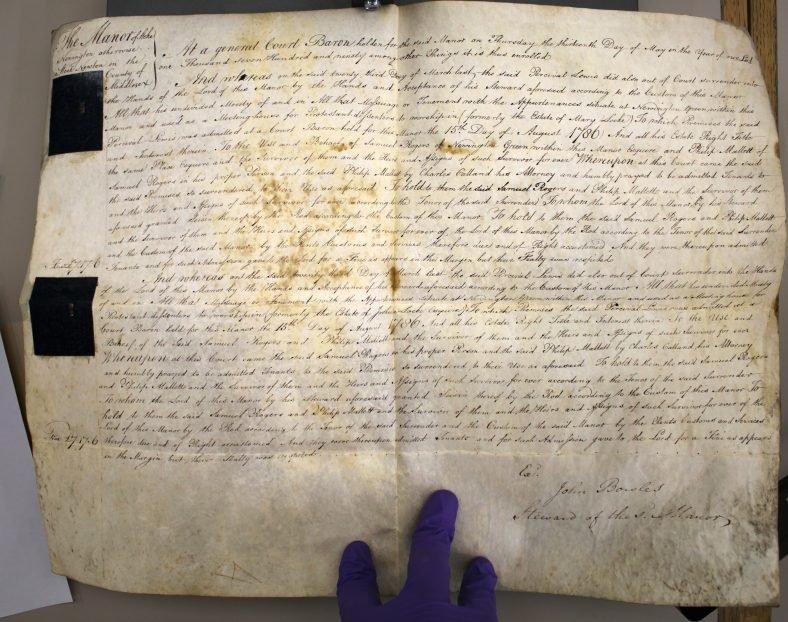 The Manor of Stoke
Newington otherwise
Stoke Newton in the
County of
Middlesex
At a general Court Baron holden for the said Manor on Thursday the thirteenth Day of May in the Year of our Lord
one Thousand seven Hundred and ninety among other Things it is thus enrolled
And whereas on the said twenty third Day of March last the said Percival Lewis did also out of Court surrender into
the Hands of the Lord of this Manor by the Hands and Acceptance of his Steward aforesaid according to the Custom of this Manor
All that his undivided Moiety of and in All That Messuage or Tenement with the Appurtenances situate at Newington Green within this
Manor and used as a Meeting house for Protestant Dissenters to worship in (formerly the Estate of Mary Lock) To which Premises the said
Percival Lewis was admitted at a Court Baron held for this Manor the 15th Day of August 1786 And all his Estate Right Title
and Interest therein To the Use and Behoof of Samuel Rogers of Newington Green within this Manor Esquire and Philip Mallett of
the same Place Esquire and the Survivor of them and the Heirs and Assigns of such Survivor for ever Whereupon at this Court came the said
Samuel Rogers in his proper Person and the said Philip Mallett by Charles Calland his Attorney and humbly prayed to be admitted Tenants to
the said Premises so surrendered to their Use as aforesaid To hold to them the said Samuel Rogers and Philip Mallett and the Survivor of them
and the Heirs and Assigns of such Survivor for ever according to the Tenor of the said Surrender To whom the Lord of this Manor by his Steward
aforesaid granted Seisin thereof by the Rod according to the Custom of this Manor To hold to them the said Samuel Rogers and Philip Mallett
and the Survivor of them and the Heirs and Assigns of such Survivor for ever of the Lord of this Manor by the Rod according to the Tenor of the said Surrender
and the Custom of the said Manor by the Rents Customs and Services therefore due and of Right accustomed And they were thereupon admitted
Tenants and for such Admission gave to the Lord for a Fine as appears in the Margin but their Fealty was respited
And whereas on the said twenty third Day of March last the said Percival Lewis did also out of Court surrender into the Hands
of the Lord of this Manor by the Hands and Acceptance of his Steward aforesaid according to the Custom of this Manor All that his undivided Moiety
of and in All That Messuage or Tenement with the Appurtenances situate at Newington Green within this Manor and used as a Meeting house for
Protestant Dissenters to worship in (formerly the Estate of Lock Esquire) To which Premises the said Percival Lewis was admitted at a
Court Baron held for this Manor the 15th Day of August 1786 And all his Estate Right Title and Interest therein To the Use and
Behoof of the said Samuel Rogers and Philip Mallett and the Survivor of them and the Heirs and Assigns of such Survivor for ever
Whereupon at this Court came the said Samuel Rogers in his proper Person and the said Philip Mallett by Charles Calland his Attorney
and humbly prayed to be admitted Tenants to the said Premises so surrendered to their Use as aforesaid To hold to them the said Samuel Rogers
and Philip Mallett and the Survivor of them and the Heirs and Assigns of such Survivor for ever according to the Tenor of the said Surrender
To whom the Lord of this Manor by his Steward aforesaid granted Seisin thereof by the Rod according to the Custom of this Manor To
hold to them the said Samuel Rogers and Philip Mallett and the Survivor of them and the Heirs and Assigns of such Survivor for ever of the
Lord of this Manor by the Rod according to the Tenor of the said Surrender and the Custom of the said Manor by the Rents Customs and Services
therefore due and of Right accustomed And they were thereupon admitted Tenants and for such Admission gave to the Lord for a Fine as appears
in the Margin but their Fealty was respited
Exd.
John Bowles
Steward of the sd. Manor